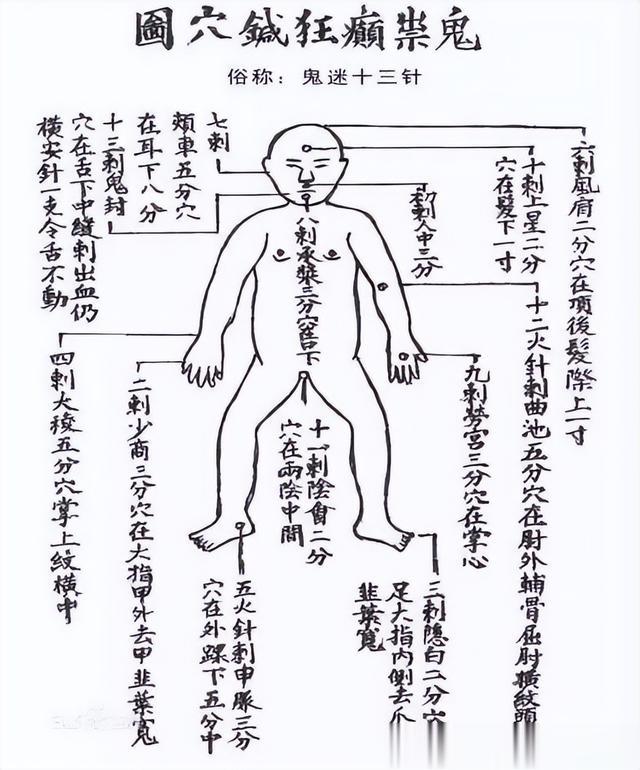 鬼祟癲狂鍼穴圖
俗称：鬼迷十三针
六刺風府二分穴在項後髮際上一寸
十刺上星二分
穴在髮下一寸
初刺人中三分
十二火針刺曲池五分穴在肘外輔骨屈肘橫紋頭
九刺勞宮三分穴在掌心
三刺隱白二分穴
足大指內側去爪
韭葉寬
八刺承漿三分穴在唇下
十一刺陰會二分
穴在兩陰中間
五火針刺申脈三分
穴在外踝下五分中
七刺
頰車五分穴
在耳下八分
十三刺鬼封
穴在舌下中縫刺出血仍
橫安針一支令舌不動
二刺少商三分穴在大指甲外去甲韭葉寬
四刺大稜五分穴掌上紋橫中